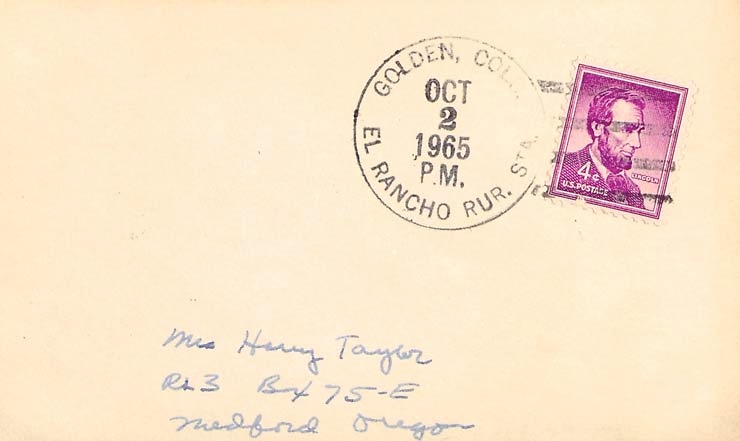 GOLDEN, COL
OCT
2
1965
P.M.
EL RANCHO RUR. STA.
4¢
LINCOLN
U.S. POSTAGE
Mrs Harry Taylor
Rt 3 Bx 75-E
Medford Oregon